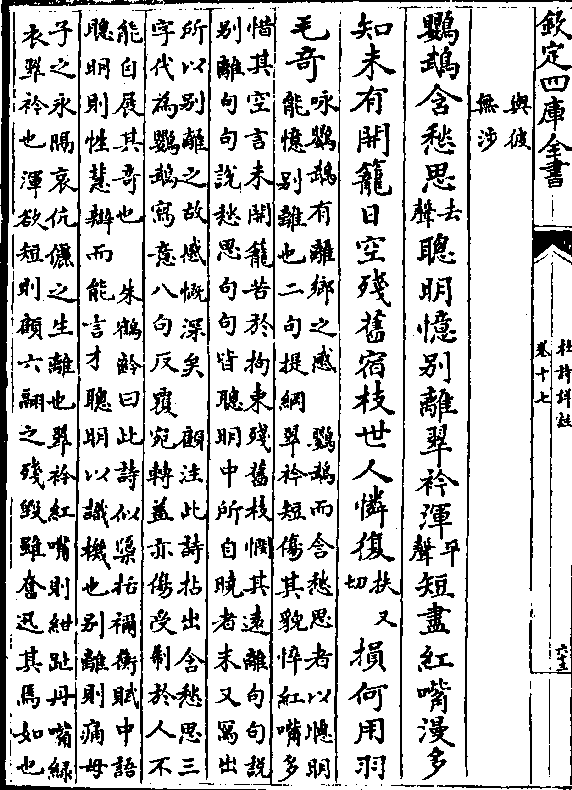 欽定四庫全書
杜詩詳註
卷十七
與彼
無涉
鸚鵡含愁思去聲聰明憶别離翠衿渾平聲短盡紅嘴漫多
知未有開籠日空殘舊宿枝世人憐復扶又切損何用羽
毛奇咏鸚鵡有離鄉之感 鸚鵡而含愁思者以聰明
能憶别離也二句提綱翠衿短傷其貌悴紅嘴多
惜其空言未開籠苦於拘束殘舊枝憫其遠離句句說
别離句句說愁思句句皆聰明中所自曉者末又寫出
所以别離之故感慨深矣 顧注此詩拈出含愁思三
字代為鸚鵡寫意八句反覆宛轉蓋亦傷受制於人不
能自展其奇也 朱鶴齡曰此詩似櫽括禰衡賦中語
聰明則性慧辯而能言才聰明以識機也别離則痛母
子之永隔哀伉儷之生離也翠衿紅嘴則紺趾丹嘴綠
衣翠衿也渾欲短則顧六翮之殘毀雖奮迅其焉如也